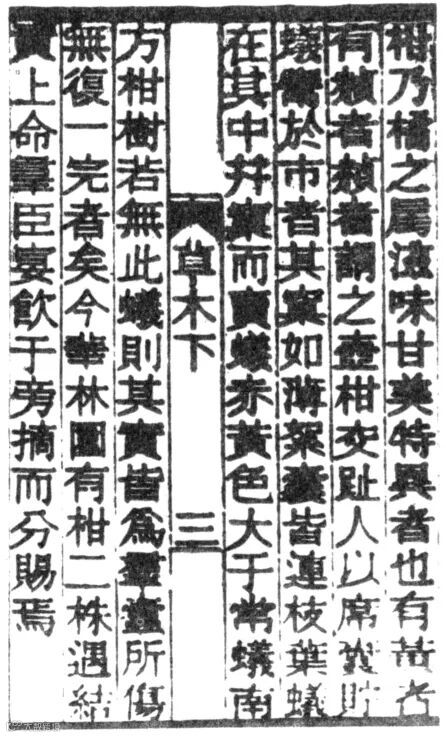 柑乃橘之屬滋味甘美特異者也有黃者
有赬者赬者謂之壺柑交趾人以席囊貯
蟻鬻於市者其窠如薄絮囊皆連枝葉蟻
在其中幷窠而賣蟻赤黃色大于常蟻南
草木下 三
方柑樹若無此蟻則其實皆爲羣蠹所傷
無復一完者矣今華林園有柑二株遇結
實上命羣臣宴飲于旁摘而分賜焉